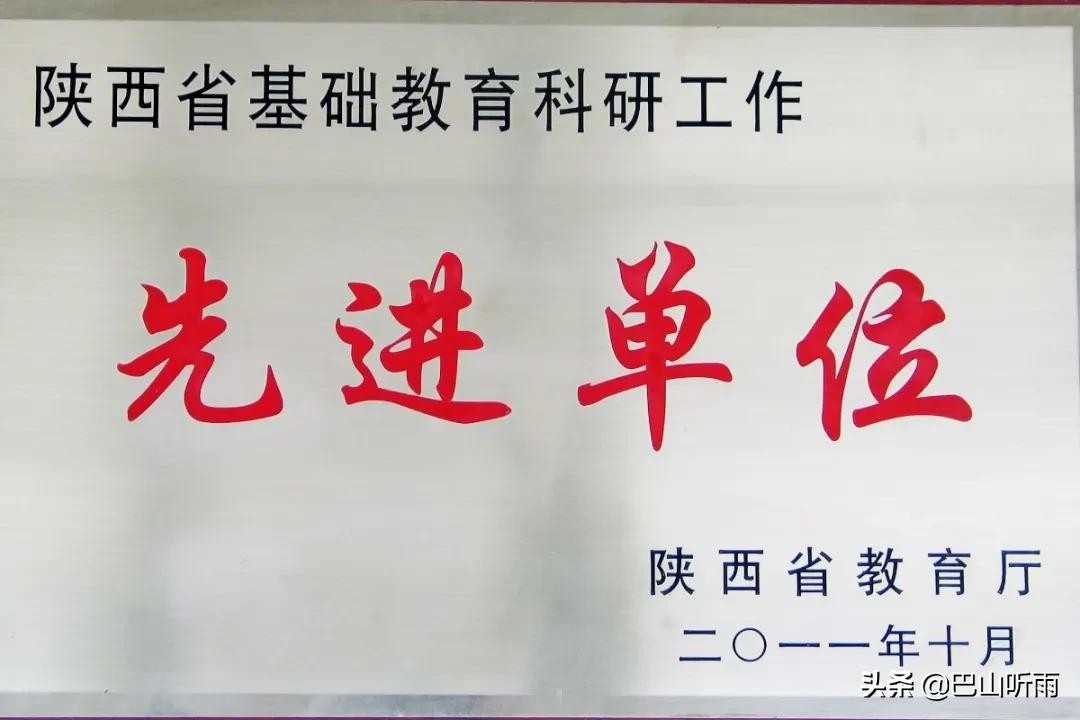 陕西省基础教育科研工作
先进单位
陕西省教育厅
二〇一一年十月
头条 @巴山听雨